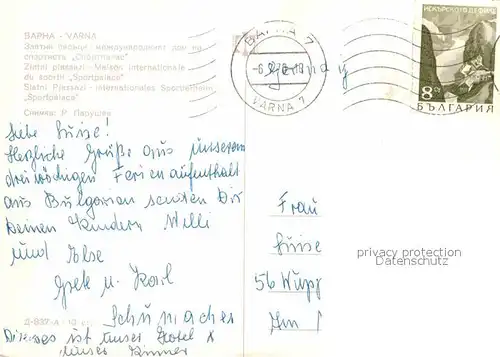 ВАРНА - VARNA
Златни пясъци - международния дом на
спортиста „Спортпалас"
Zlatni piassazi - Maison internationale
du sportif „Sportpalace"
Slatni Pjassazi - internationales Sportlerheim
„Sportpalace"
Снимка: Р. Парушев
ВАРНА 7
VARNA 7
Germany
ИСКЪРСКОТО ДЕФИЛЕ
8 ст
БЪЛГАРИЯ
Liebe Luise!
Herzliche Grüße aus unserem
dreiwöchigen Ferienaufenthalt
aus Bulgarien senden Dir
Deinen Kindern Willi
und Else
Grete u. Karl
Schumacher
Dieses ist unser Hotel x
unser Zimmer
Frau
Luise
56 Wupp
Am
privacy protection
Datenschutz
Д-827-А